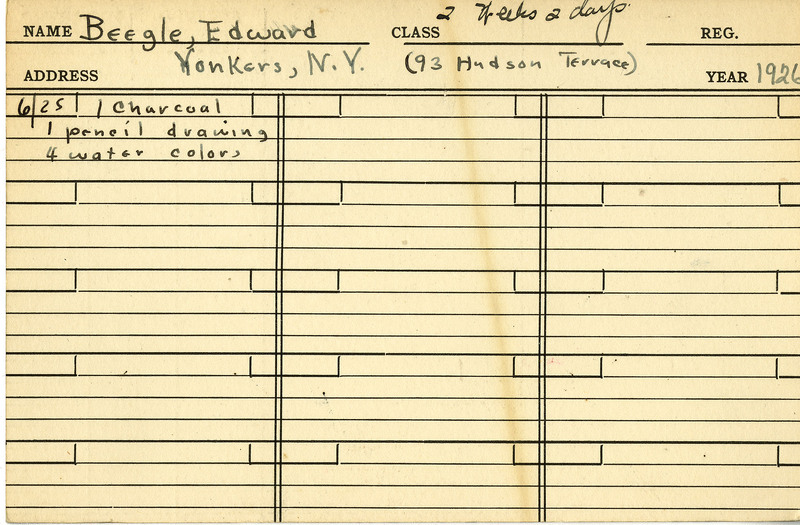 2 Weeks 2 days
NAME Beegle, Edward CLASS REG.
ADDRESS Yonkers, N.Y. (93 Hudson Terrace) YEAR 1926
6/25 1 Charcoal
1 pencil drawing
4 water colors